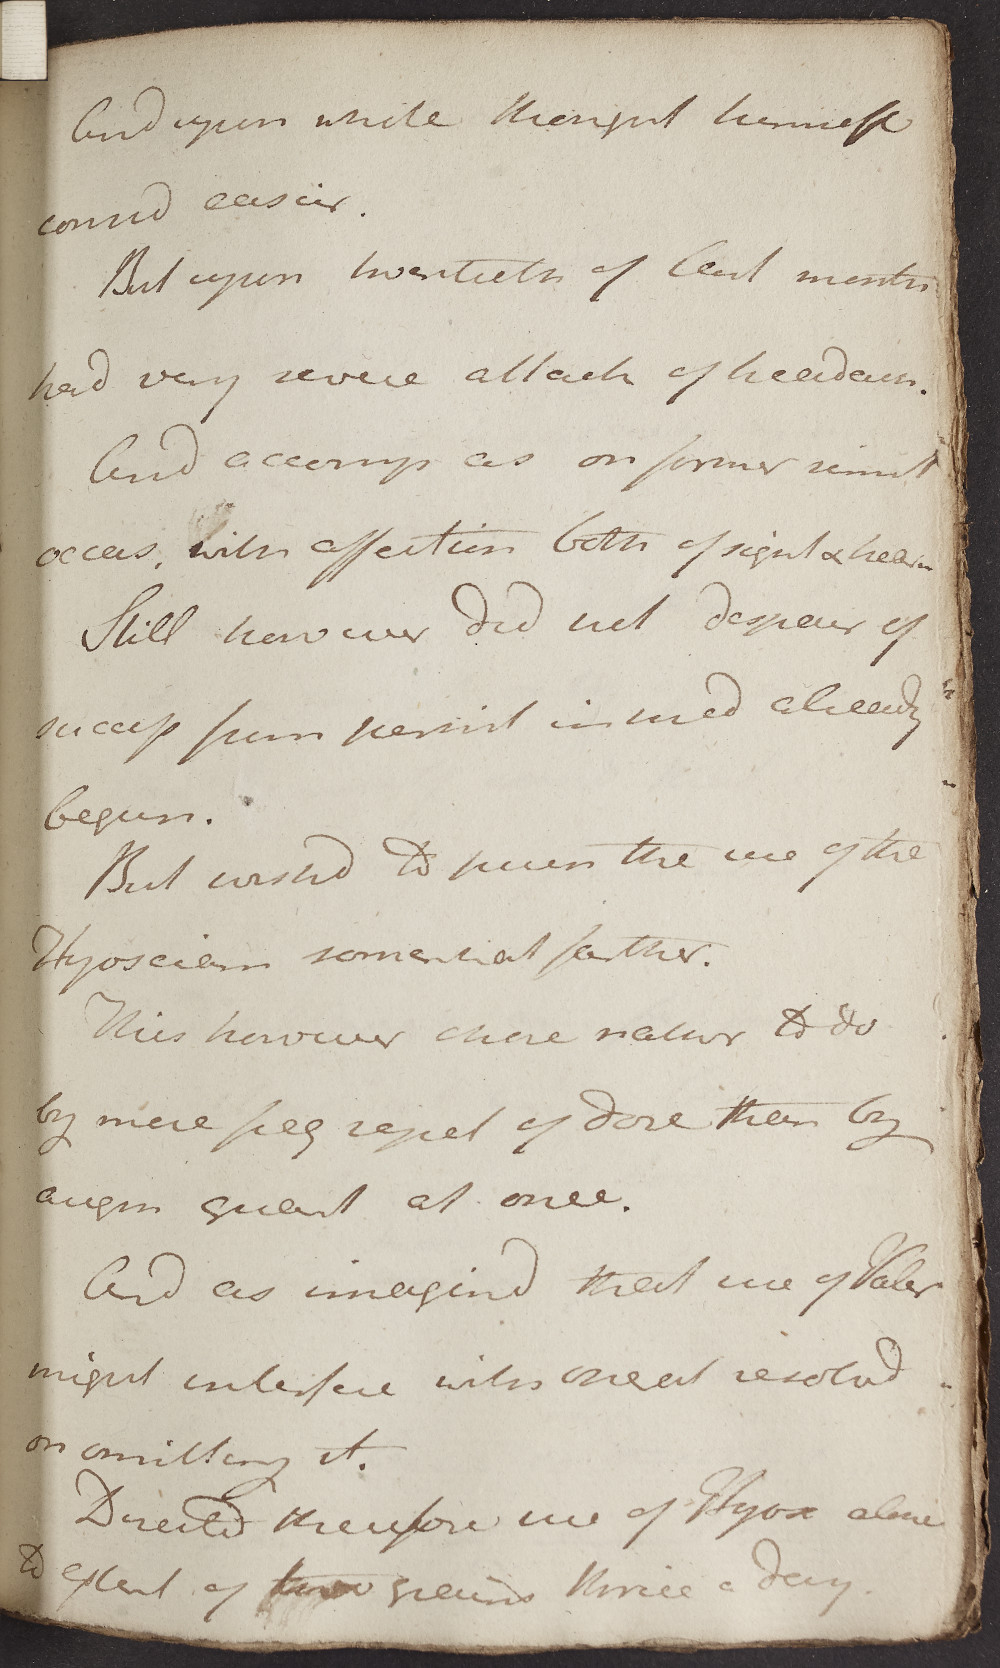 And upon whole thought himself
consid easier.
But upon twentieth of last month
had very severe attack of headach.
And accomp as on former simil
occas. with affection both of sight & hearin
Still however did not despair of
success from persist in med already
begun.
But wishd to push the use of the
Hyosciam somewhat farther.
This however chose rather to do
by more freq repet of dose than by
augm quant at once.
And as imagind that use of Valer
might interfere with resolvd
on omitting it.
Directd therefore use of Hyos alone
to extent of two grains thrice a day.